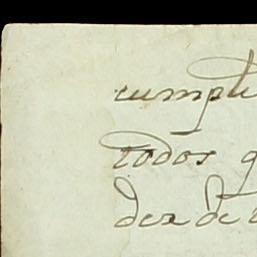 cumpli
todos q
dez de